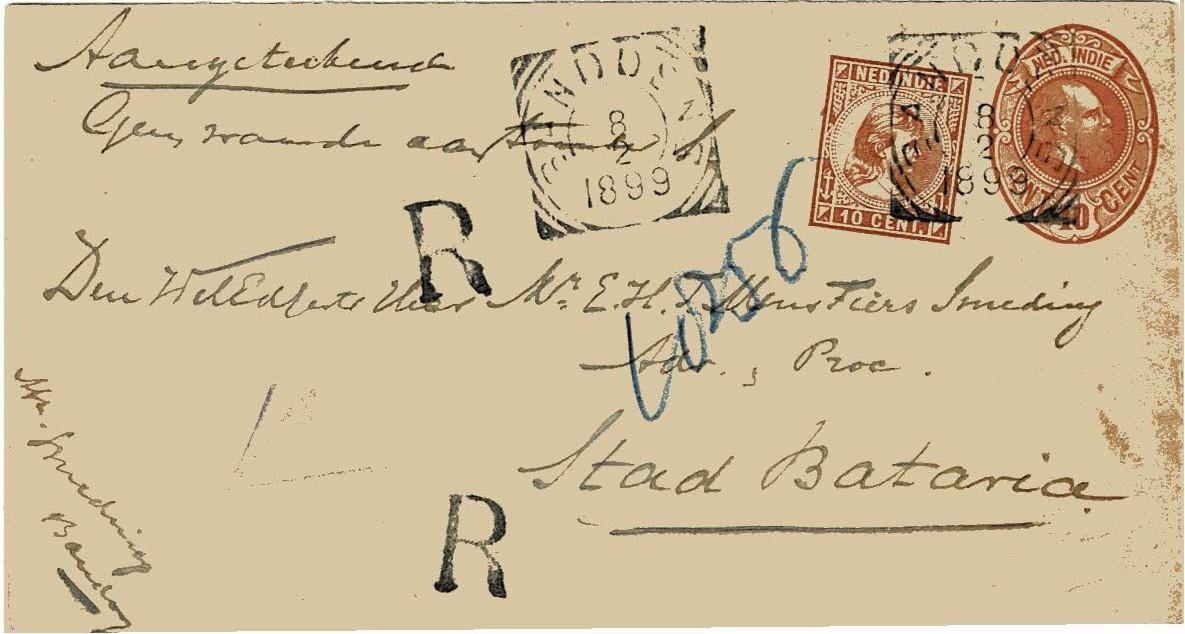 Aangeteekend
Geen waarde aan
BANDOENG
8
2
1899
NED. INDIE
10 CENT.
BANDOENG
8
2
1899
NED. INDIE
10 CENT
R
Den WelEdGestr Heer Mr. E.H. Mons Fiers Smeding
Adv. , Proc.
Stad Batavia
R
Smeding
Bandog